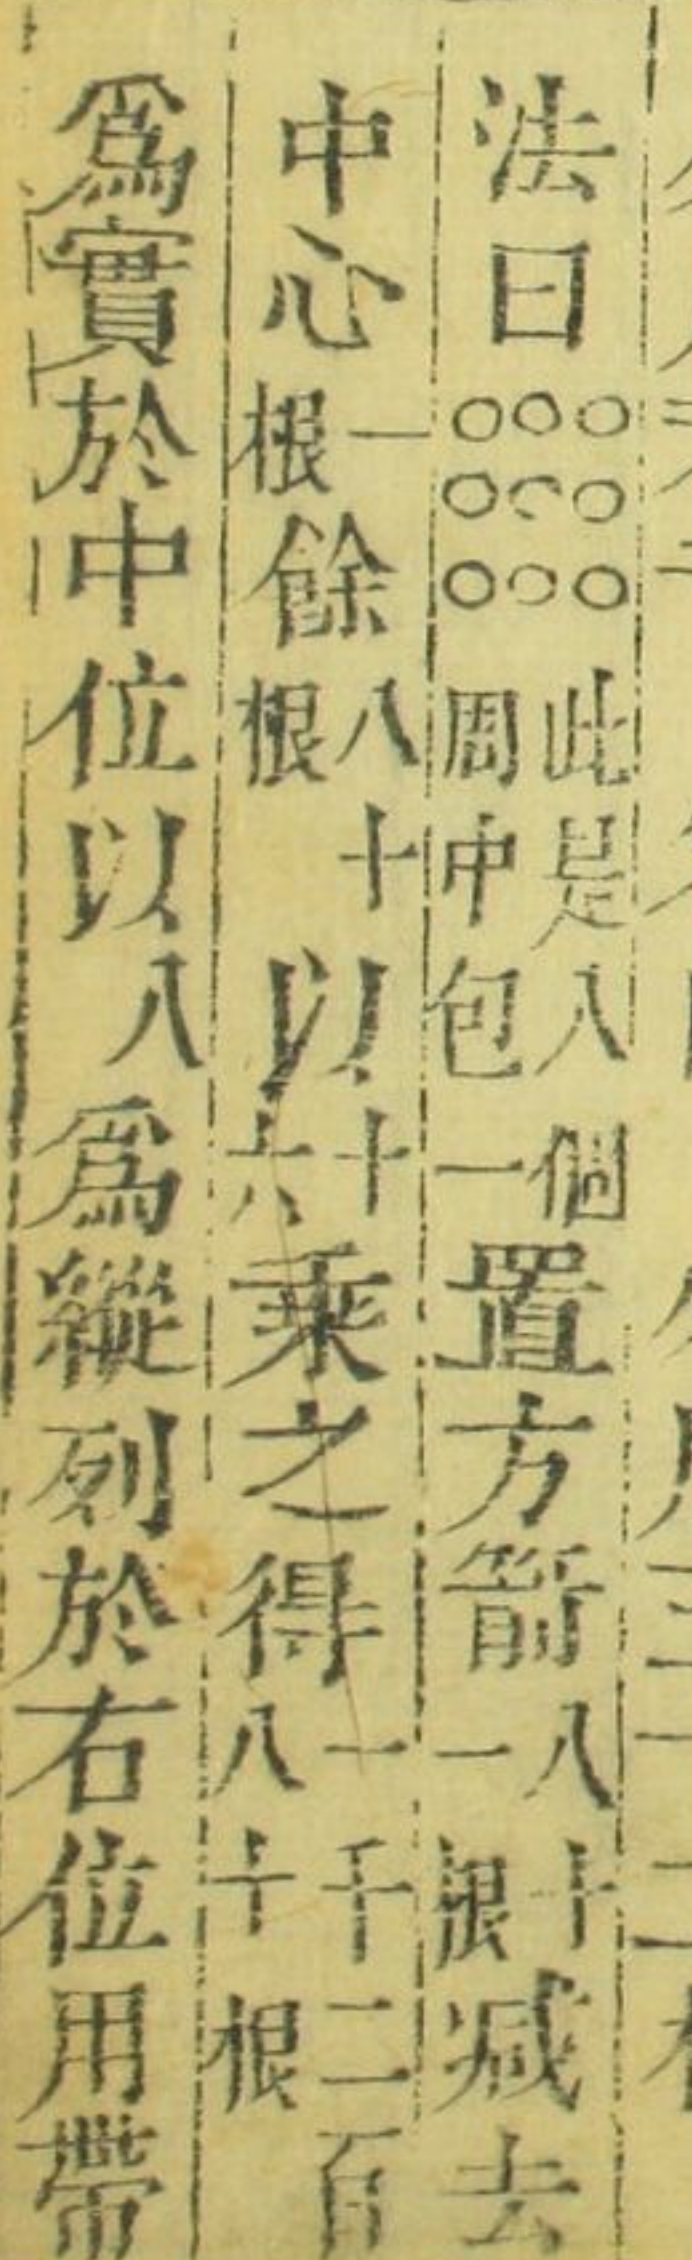 法曰○○○○○○○○○此是八個周中包一置方箭八十一根減去
中心一根餘八十根以十六乘之得一千二百八十根
爲實於中位以八爲縱列於右位用帶